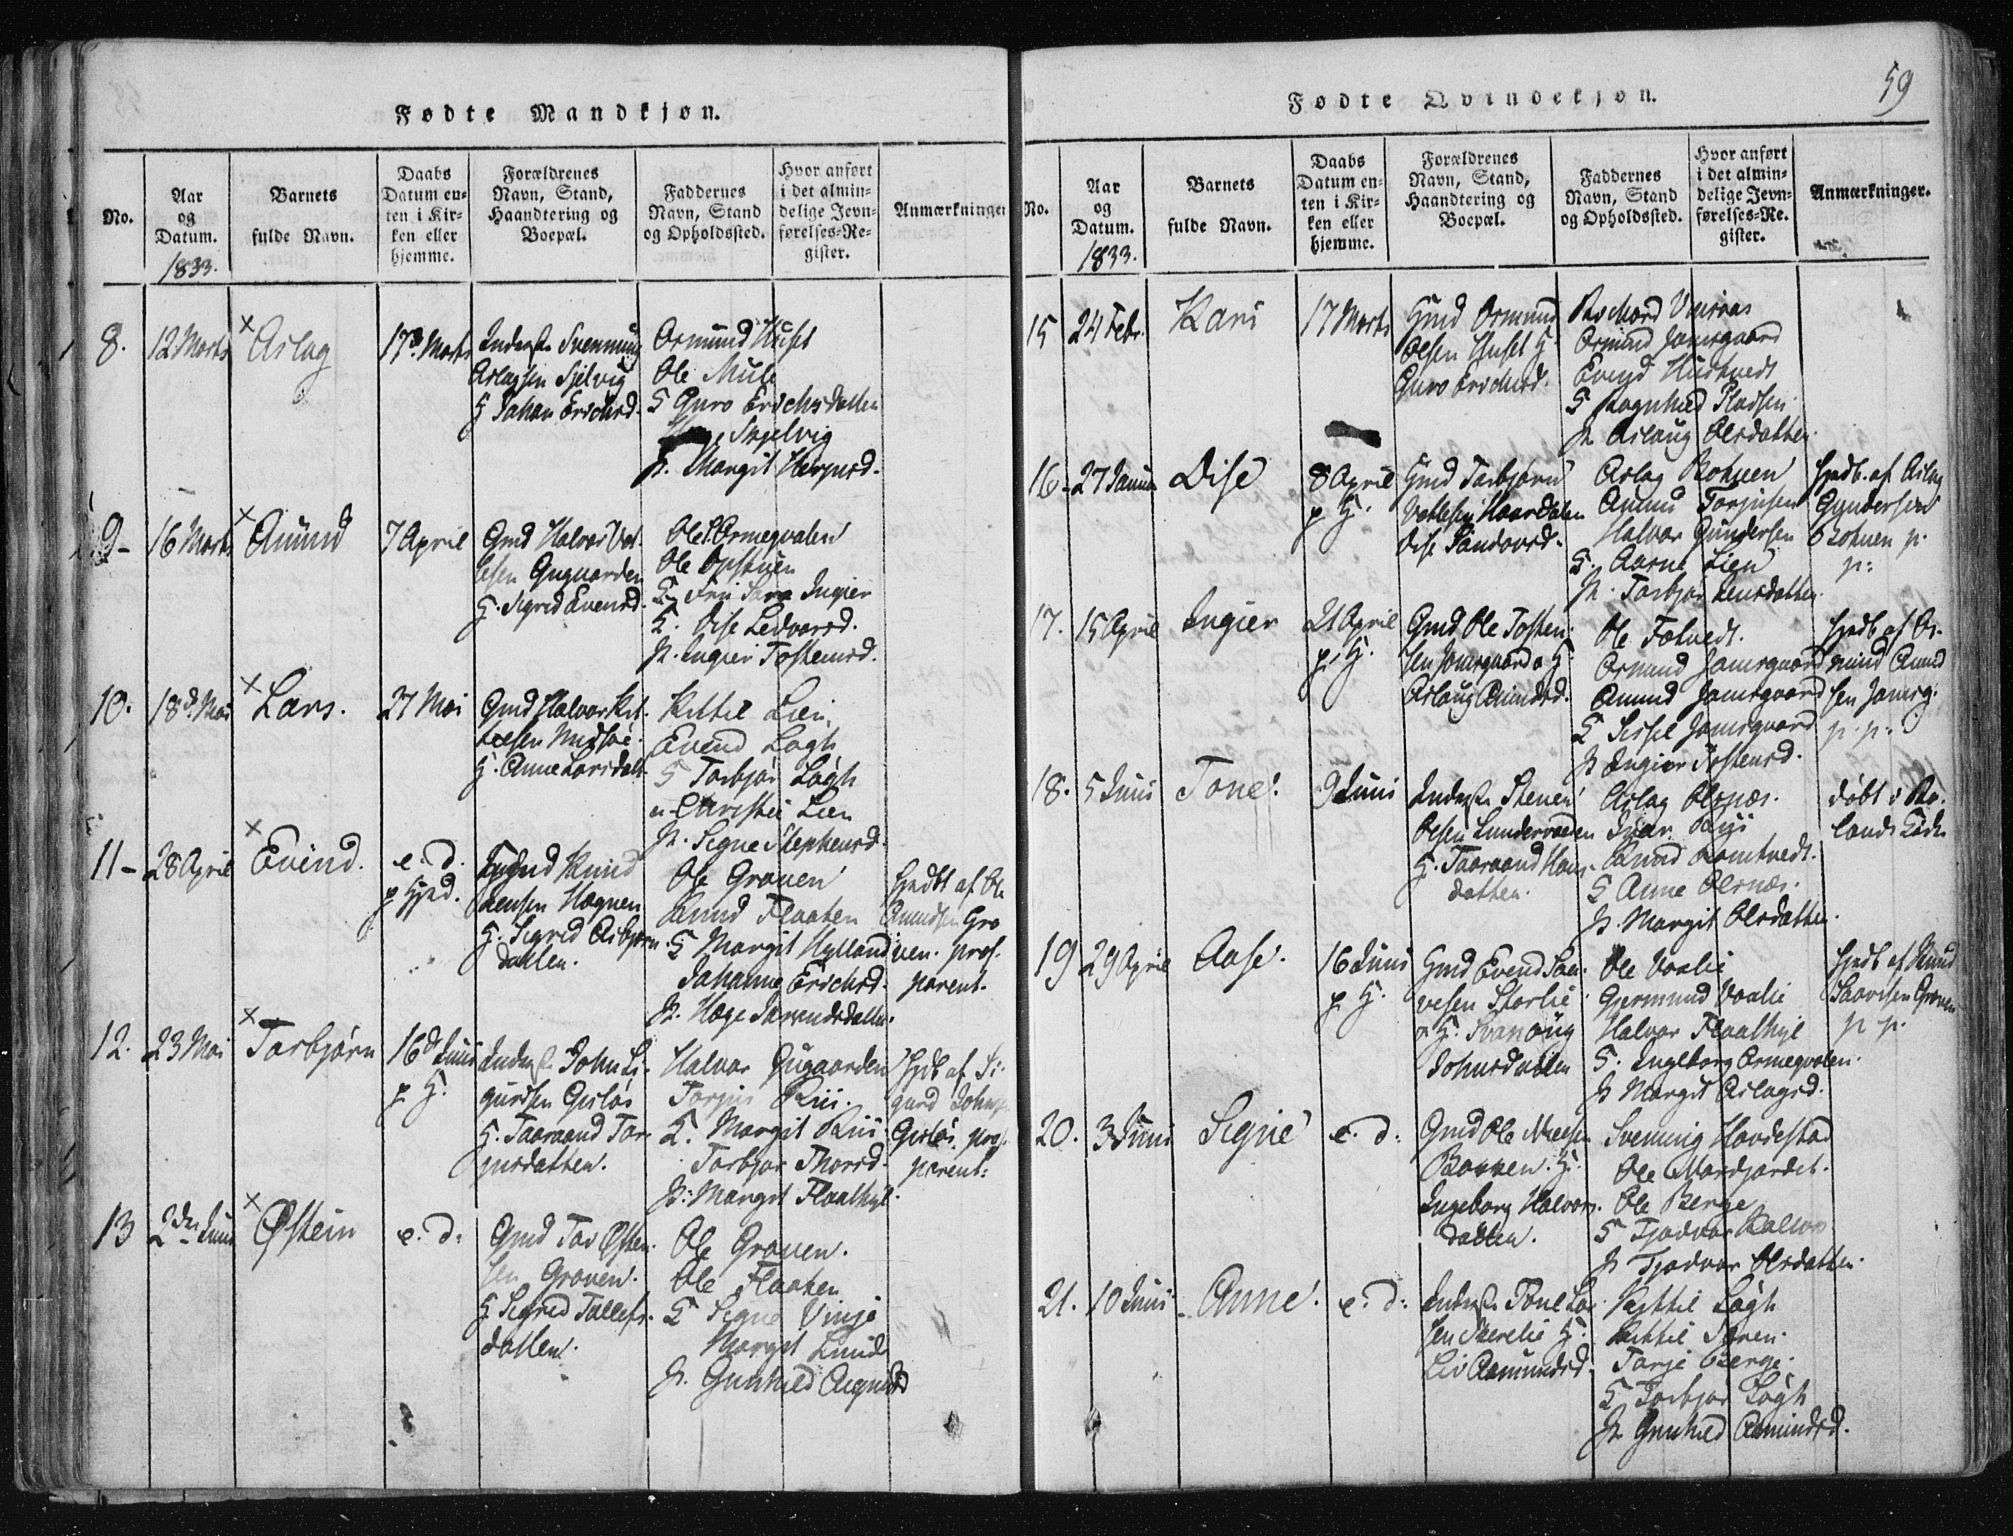 59
Fødte Mandkjøn.
No.
Aar og Datum.
1833.
Barnets fulde Navn.
Daabs Datum enten i Kirken eller hjemme.
Forældrenes Navn, Stand, Haandtering og Boepæl.
Faddernes Navn, Stand og Opholdssted.
Hvor anført i det almindelige Jevnførelses-Register.
Anmærkninger
8.
12 Marts
Aslag
17d Marts
Inderst Svennung
Aslagsen
G Johan Erichsd.
Osmund Huset
Ole Mule
G Guro Erichsdatter
J. Margit
9-
16 Marts
Amund
7 April
Gmd Halvor
G. Sigrid Evensd.
Ole Ormegvalen
Ole Opstuen
Ingier
G. Dise Ledvorsd.
J. Ingier Tostensd.
10.
18d. Mai
Lars.
27 Mai
Gmd Halvor Kit-
telsen
G. Anne Larsdatt.
Kittel Lien
Evend Løgh
G Torbjør Løgh
Christie Lien
J. Signe Stephensd.
11-
28 April
Evind.
e. d.
p Hjed.
Knud
Jensen Hegnen
G. Sigrid Asbjørn
datter.
Ole Groven
Knud Flaaten
G Margit Hylland
Johanne Erichsd.
J. Hæge
Hjdbt af Ole
Amundsen Gro
ven. præs.
parent.
12.
23 Mai
Torbjørn
16d Juni
p H.
Inderst John Si-
gurdsen Gisløs
G. Taaraand Tor
jusdatter.
Halvor Gugaarden
Torjus Rii.
G. Margit Rii
Torbjør Thorsd.
J. Margit Flaathyl.
Hjdb af Si-
gurd Johns.
Gisløs. præs.
parent:
13
2den Juni
Østein
e. d:
Gmd Tov Østen-
sen Groven.
G Sigrid Tallefs.
datter.
Ole Groven.
Ole Flaaten
G Signe Vinje
Margit Lund
J. Gunhild
Fødte Qvindekjøn.
No.
Aar og Datum.
1833.
Barnets fulde Navn.
Daabs Datum enten i Kirken eller hjemme.
Forældrenes Navn, Stand, Haandtering og Boepæl.
Faddernes Navn, Stand og Opholdssted.
Hvor anført i det almindelige Jevnførelses-Re.gister.
Anmærkninger.
15
24 Febr.
Kari
17 Marts
Osmund
Olsen Huset G.
Guro Erichsd.
Osmund Jamsgaard
Evend Hustvedt
G Ragnhild Pladsen
J. Aslaug Olsdatter.
16-
27 Januar
Dise
8 April
p H.
Gmd Torbjørn
Vetlesen Haardalen
Dise Sandovsd.
Aslag Bohnen
Anund Torjusen
Halvor Gundersen
G. Aarne Lien
J. Torbjør Jensdatter.
Hjdb. af Aslag
Gundersen
Bohnen p.
p:
17.
15 April
Ingier
21 April
p. H.
Gmd Ole Tosten-
sen Jamsgaard G
Aslaug Amundsd.
Ole
Osmund Jamsgaard
Amund Jamsgaard
G Sissel Jamsgaard
J. Ingier Tostensd.
Hjdb af As-
mund Amund
sen Jamsg.
p. p:
18.
5 Juni
Tone.
9 Juni
Inderst Stenen
Olsen
G. Taaraand Hans-
datter.
Aslag Olsnæs.
Ivar
Knud Romtvedt.
G Anne Olsnæs.
J. Margit Olsdatter.
døbt i Ro-
lands Kirke
19
29 April
Aase.
16 Juni
p H.
Gmd Evend Saa-
vesen Storlie
G. Svanaug
Johnsdatter
Ole Vaalie
Germund Vaalie
Halvor Flaathyl
G. Ingeborg Ormegvalen.
J Margit Aslagsd.
Hjdb af Knud
Saavesen Groven
p p.
20.
3 Juni
Signe
e. d:
Gmd Ole Nielsen
Bakken. G.
Ingeborg Halvors.
datter.
Svennung Hovdestad
Ole Mordjordet.
Ole Berge
G Tjodvor Kalvo
J. Tjodvor Olsdatter.
21.
10 Juni
Anne.
e. d:
Inderst
G.
Liv Aamundsd.
Kittil Løgh
Kittil
Torje Berge.
G Torbjør Løgh
J. Gunhild Amundsd.